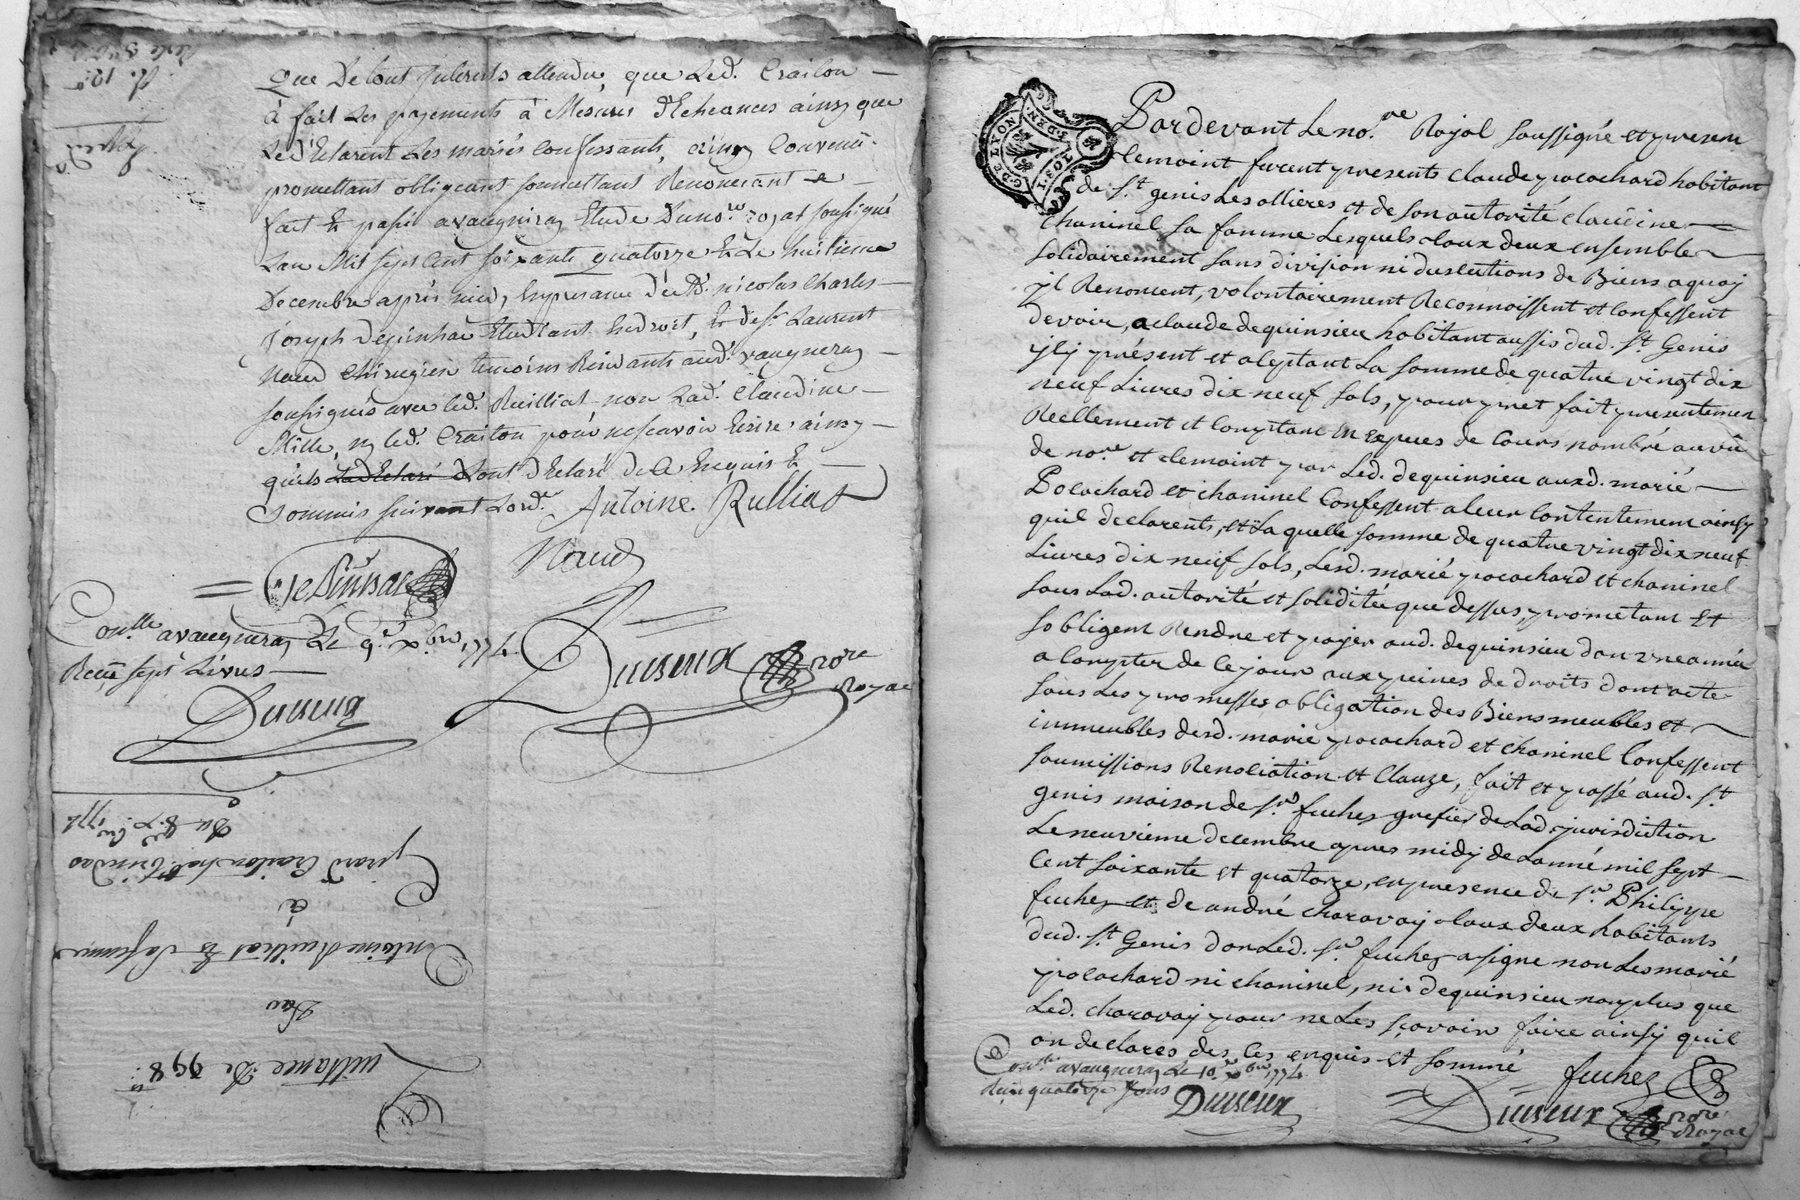 que de tout interets attendu que led. Craiton
à fait les payements à Mesure d'Echeances ainsy que
led'Eclarent les mariés confessants, ainsy convenu
promettant obligeant soumettant Renoncant &
fait & passé a vaugneray Etude dunore. royal soussigné
Lan Mil sept Cent soixante quatorze & le huitieme
Decembre après midy, En presance de Mr. nicolas Charles
Joseph Etudiant En droit, & de sr. Laurent
Naud Chirurgien temoins Residants aud. vaugneray
soussignés avec led. Rulliat non Lad. Claudine
Mille, ny led. Craiton pour ne scavoir Ecrire ainsy
quils dont d'Eclaré de ce Enquis &
sommés suivant Lord.ce Antoine Rulliat
Naud
Con.lle a vaugneray Le 9.e xbre 1774
Receu sept Livres
Duiseux
Duiseux nore
Royal
Quittance De 998 ll
Par
Antoine Rulliat & sa femme
à
Girard Craiton
Du 8e xbre 1774
G. DE LYON
Pardevant le no.re Royal soussigné et presen
temoint furent presents claude pocachard habitant
de St. genis les ollieres et de son autorité claudine
chaninel sa famme Lesquels tous deux ensemble
solidairement sans division ni discutions de Biens a quoy
il Renoncent, volontairement Reconnoissent et confessent
devoir, a claude dequinsieu habitant aussis dud. St. Genis
ycy présent et aceptant la somme de quatre vingt dix
neuf Livres dix neuf sols, pour pret fait presentemen
Reellement et comptant En Especes de Cours nombré au vû
de no.re et temoint par Led. dequinsieu auxd. marié
Pocachard et chaninel Confessent a leur Contentement ainsy
quil declarents, et La quelle somme de quatre vingt dix neuf
Livres dix neuf sols, Lesd. marié pocachard et chaninel
sous Lad. autorité et solidité que dessus, prometant Et
sobligent Rendre et payer aud. dequinsieu dan une année
a Compter de Ce jour aux peines de droits dont acte
sous Les promesses obligation des Biens meubles et
immeubles desd. marié pocachard et chaninel Confessent
soumissions Renociation et Clauze, fait et passé aud. St.
genis maison de Sr. fuchez grefier de Lad. jurisdiction
Le neuvieme decembre apres midy de Lanné mil sept
Cent soixante et quatorze, en presence de Sr. Philippe
fuchez et de andré charavay tous deux habitants
dud. St. Genis don Led. Sr. fuchez a signe non Les marié
pocachard ni chaninel, ni dequinsieu non plus que
Led. charavay pour ne Les sçavoir faire ainsy quil
on declares des ces enquis et sommé
fuchez
Con.lle a vaugneray Le 10.e xbre 1774
Receu quatorze sous
Duiseux
Duiseux nore
Royal